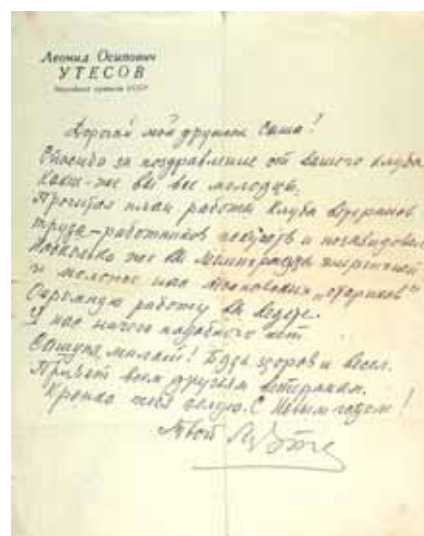 Леонид Осипович
УТЕСОВ
Народный артист СССР
Дорогой мой дружок Саша!
Спасибо за поздравление от Вашего клуба
Какие же вы все молодцы.
Прочитал план работы Клуба ветеранов
труда-работников искусств и позавидовал
же вы Ленинградцы энергичней
и моложе нас Московских „стариков"
Огромную работу вы ведете.
У нас ничего подобного нет.
Сашуня, милый! Будь здоров и весел.
Привет всем друзьям ветеранам.
Крепко тебя целую. С Новым годом!
Твой